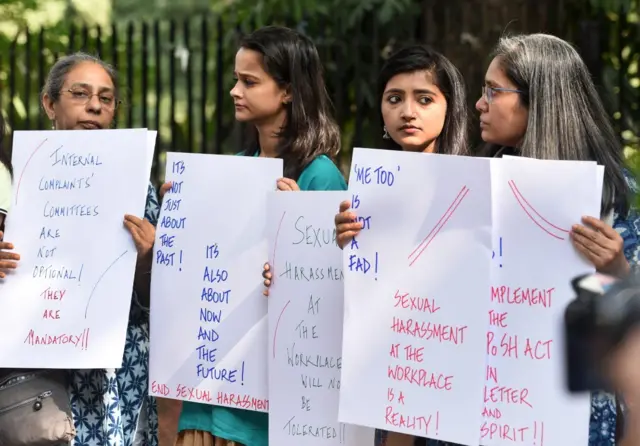 INTERNAL
COMPLAINTS'
COMMITTEES
ARE
NOT
OPTIONAL!
THEY
ARE
MANDATORY!!
IT'S
NOT
JUST
ABOUT
THE
PAST!
IT'S
ALSO
ABOUT
NOW
AND
THE
FUTURE!
END SEXUAL HARASSMENT
HARASSMENT
AT
THE
WORKPLACE
WILL NO
BE
TOLERATED
'ME TOO'
IS
A
FAD!
SEXUAL
HARASSMENT
AT THE
WORKPLACE
IS A
REALITY!
!
MPLEMENT
THE
POSH ACT
IN
LETTER
AND
SPIRIT!!